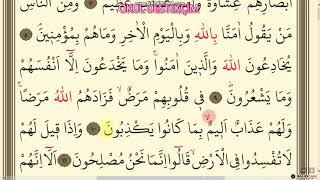 OKUL DESTEKÇİM
اَبْصَارِهِمْ غِشَاوَةٌ وَمِنَ النَّاسِ
مَنْ يَقُولُ اٰمَنَّا بِاللّٰهِ وَبِالْيَوْمِ الْاٰخِرِ وَمَاهُمْ بِمُؤْمِنٖينَ ٨
يُخَادِعُونَ اللّٰهَ وَالَّذٖينَ اٰمَنُوا وَمَا يَخْدَعُونَ اِلَّٓا اَنْفُسَهُمْ
وَمَا يَشْعُرُونَ ٩ فٖى قُلُوبِهِمْ مَرَضٌ فَزَادَهُمُ اللّٰهُ مَرَضًا
وَلَهُمْ عَذَابٌ اَلٖيمٌ بِمَا كَانُوا يَكْذِبُونَ ١٠ وَاِذَا قٖيلَ لَهُمْ
لَا تُفْسِدُوا فِى الْاَرْضِ قَالُٓوا اِنَّمَا نَحْنُ مُصْلِحُونَ ١١ اَلَٓا اِنَّهُمْ